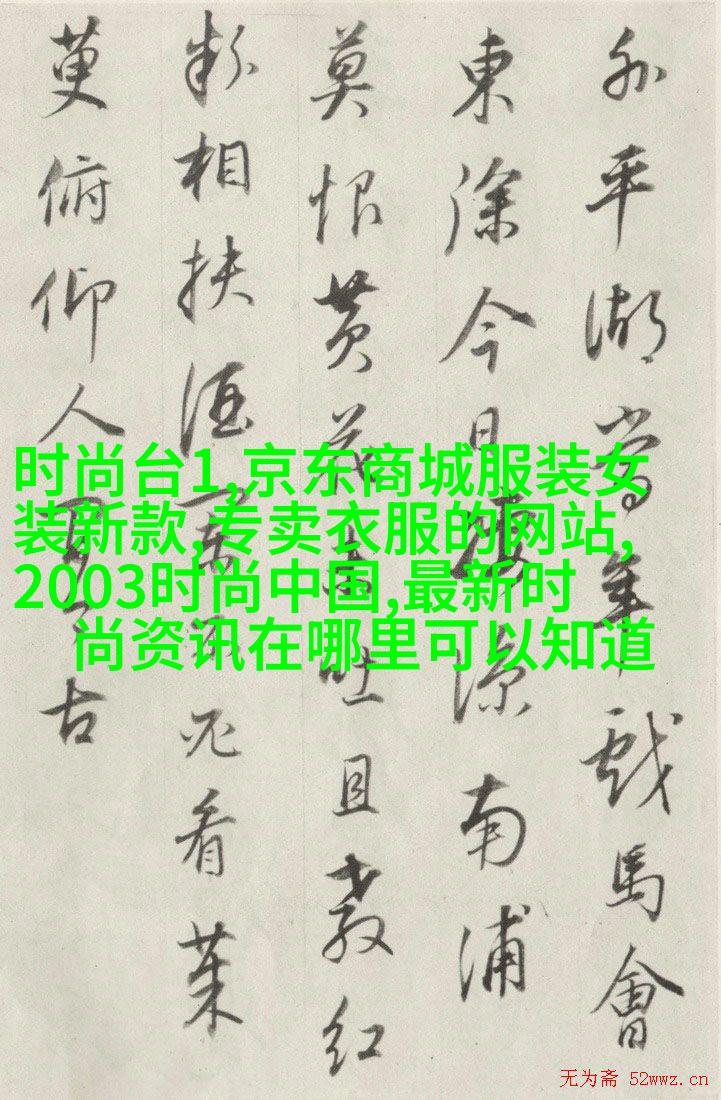 外平湖當年戲馬會
東徐今日凄涼南浦
莫恨黄花未吐且教红
粉相扶酒闌不必看茱
萸俯仰人間今古
时尚台1,京东商城服装女
装新款,专卖衣服的网站,
2003时尚中国,最新时
尚资讯在哪里可以知道
无为斋 52wwz.cn